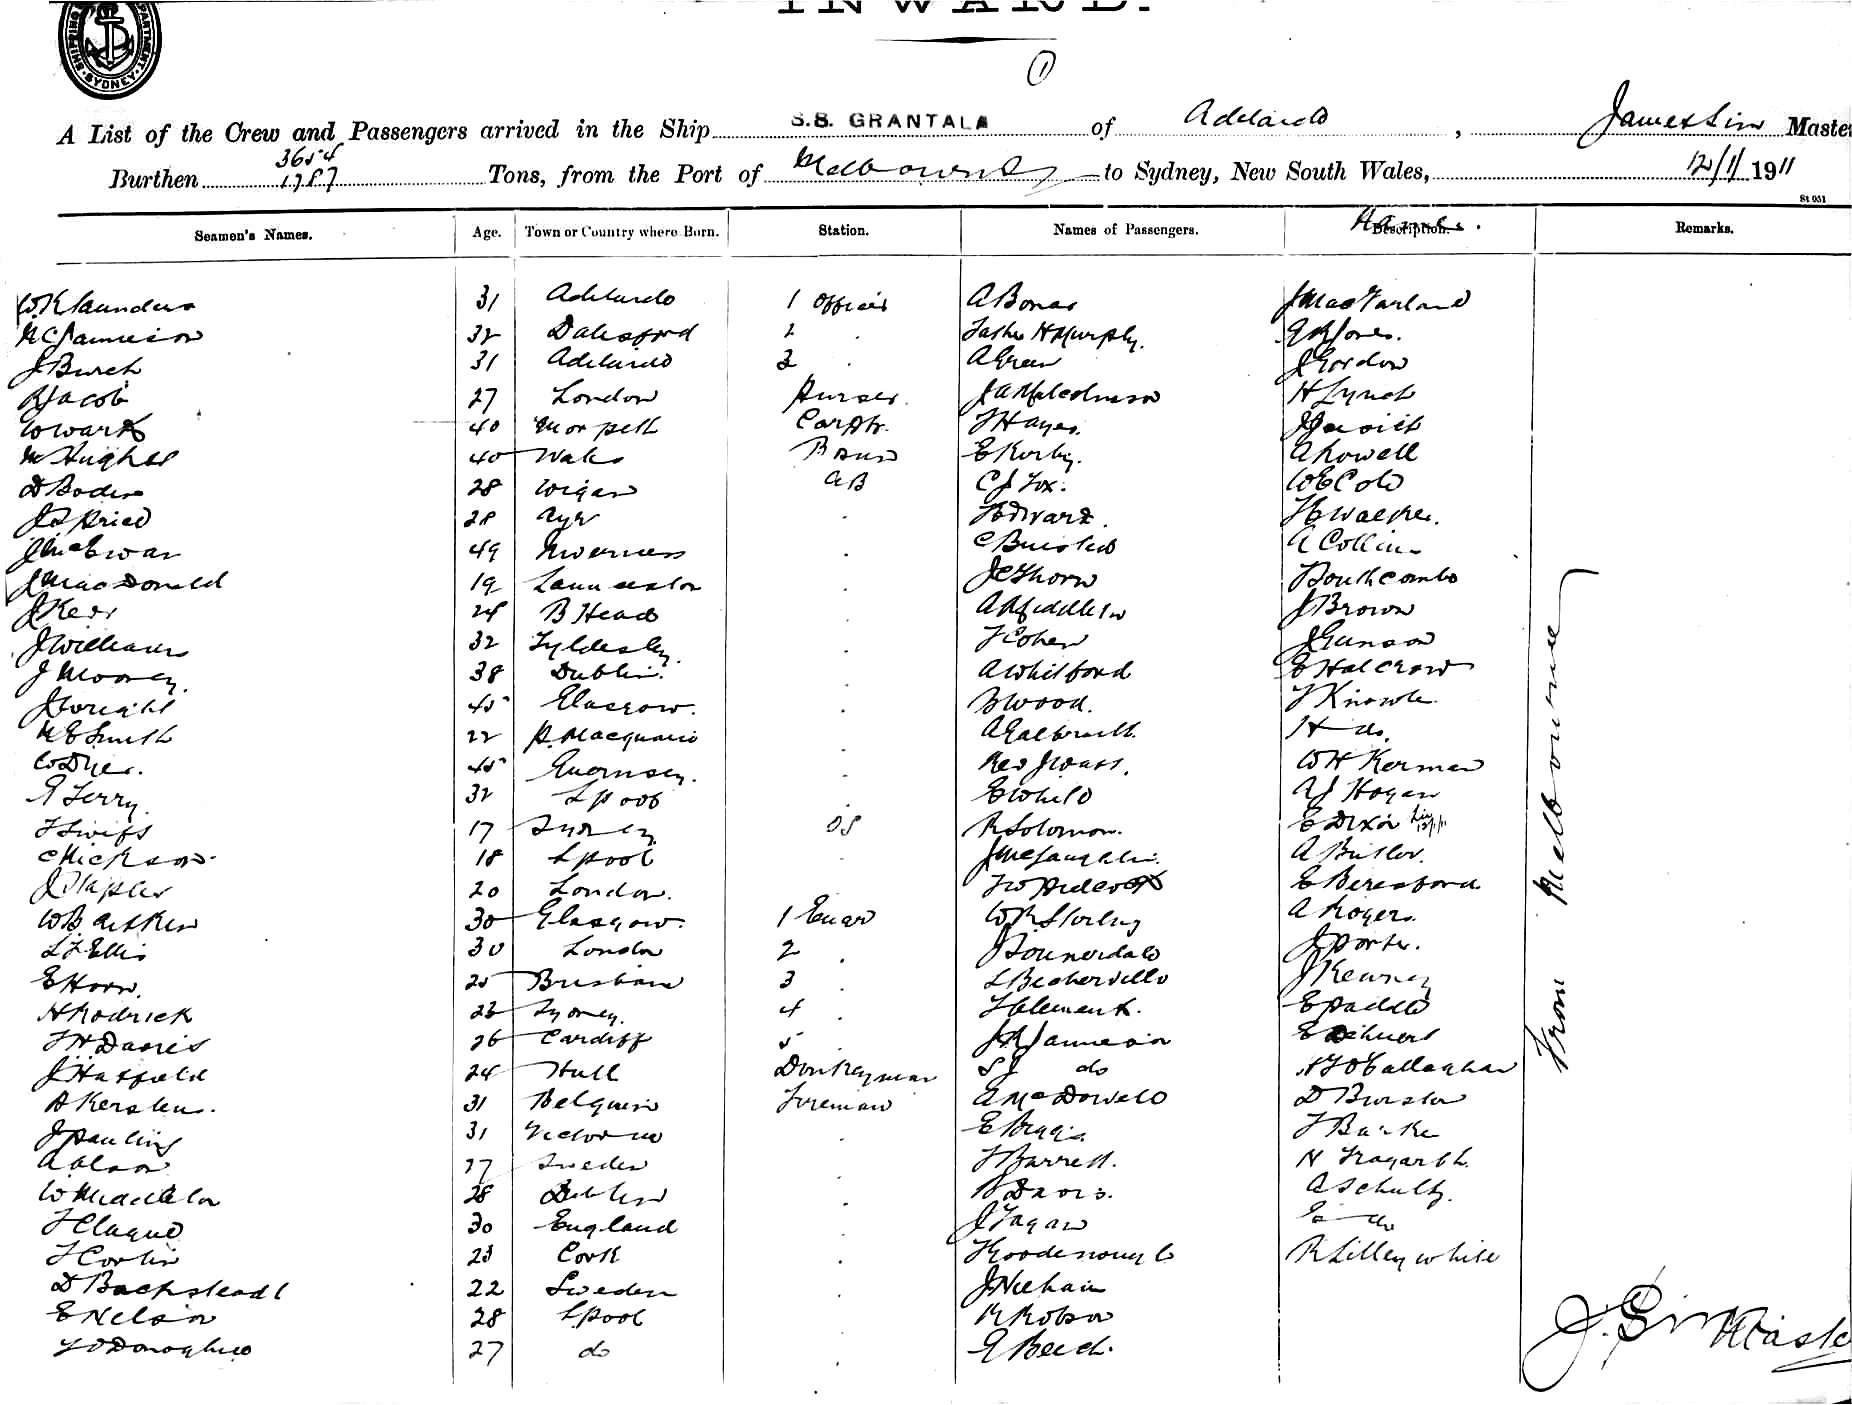 INWARD.
1
SHIPPING DEPARTMENT SYDNEY
A List of the Crew and Passengers arrived in the Ship S.S. GRANTALA of Adelaide, James Sim Master
Burthen 3654 1787 Tons, from the Port of Melbourne to Sydney, New South Wales, 12/1/1911
St 051
Seamen's Names. Age. Town or Country where Born. Station. Names of Passengers. Description. Names. Remarks.
W R Saunders 31 Adelaide 1 Officer A Bonar J MacFarland
M C Jamieson 32 Dalesford 2 . Father H Murphy. Jones.
J Burch 31 Adelaide 3 . A Green J Gordon
R Jacob 27 London Purser. J A Malcolmson H Lynch
W Wark 40 Morpeth Carptr. T Hayes.
M Hughes 40 Wales E Korby. A Rowell
D Boden 28 Wigan AB C J Fox. W E Cole
28 Ayr . H Walker.
J McEwan 49 Inverness . A Collins
J MacDonald 19 Launceston . J C Thorn Southcombe
J Kerr 24 B Head . A Middleton J Brown
J Williams 32 Tyldesley . T Cohen J Gunson
J Mooney. 38 Dublin. . A Whitford E Halcrow
J Wright 45 Glasgow. . B Wood. T Knowle
M E Smith 22 P. Macquarie . A Galbraith. H do.
W Dyer. 45 Guernsey. . Rev J Watt. W H Kerman
G Terry. 32 Lpool . E White A J Hogan
T Swift 17 Sydney OS R Solomon. E Dixon
C Hickson. 18 Lpool . J McLaughlin. A Butler.
J Stapler 20 London. . E Beresford.
W B Aitken 30 Glasgow. 1 Engr W R Stirling A Rogers.
L F Ellis 30 London 2 . J Sounerdale J Porter.
E Horn. 25 Brisbane 3 . J Kearney
H Rodrick 23 Sydney. 4 . T Clement. E Paddle
T H Davies 26 Cardiff 5 . J R Jamieson
J Hatfield 24 Hull Donkeyman S J do O'Callaghan
A Kersten. 31 Belguim Fireman A McDowell D
J Pauling 31 Victoria . E T
A Olson 27 Sweden . T Barrett. H Hogarth.
W Middleton 28 Dublin . B Davis. C Schultz.
T Clague 30 England . J Fagan E do
T Corlin 23 Cork . T Goodenough R Lilleywhite
D Backsteadt 22 Sweden . J Neehan
E Nelson 28 Lpool . R Robson
T O'Donoghue 27 do . G Beech.
From Melbourne
J. Sim Master